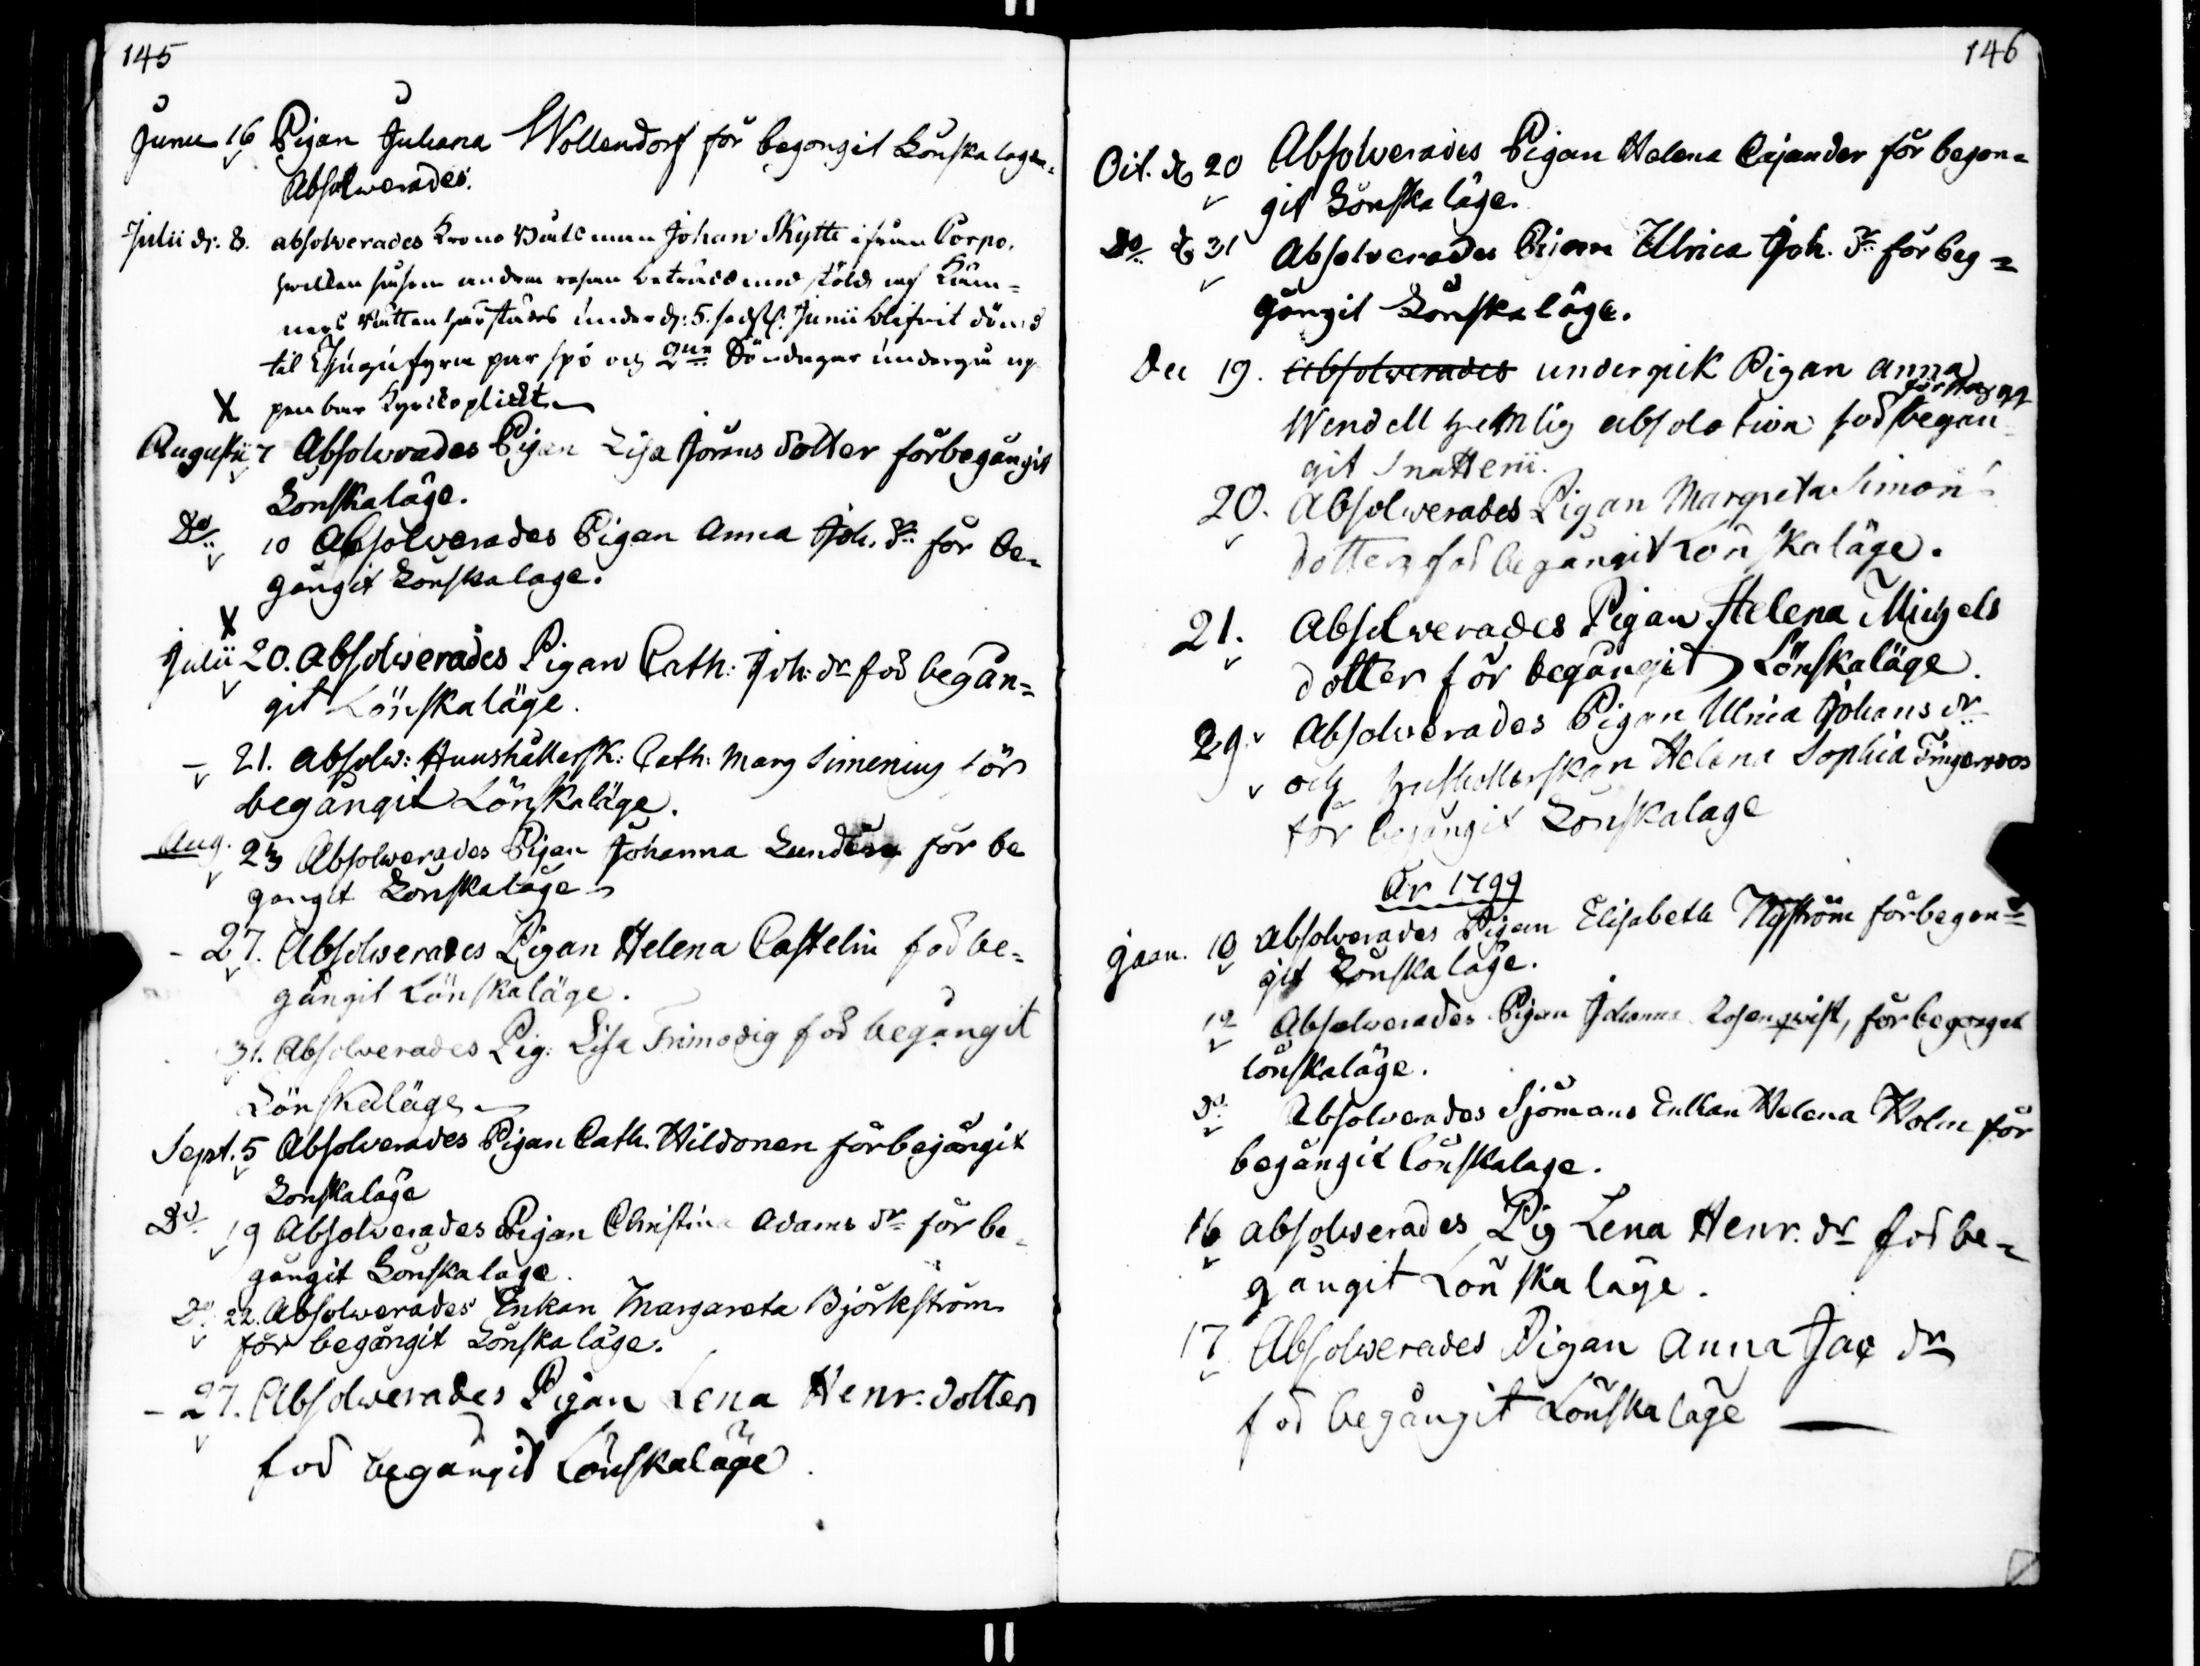 145
Junii 16 Pigan Juliana Wollendorf för begongit Lönskalägen
Absolwerades.
Julii d. 8. absolverades Krono Båtsman Johan Skytte ifrån Corpo,
som andra resan beträdd med stöld af Käm-
ners Rätten härstädes under d: 5. Junii blifvit dömd
til Tjugufyra par spö och 2ne Söndagar undergå up
X penbar Kyrckoplickt
Augusti 7 Absolverades Pigan Lisa Jörans dotter för begångit
Lönskaläge.
Do 10 Absolverades Pigan Anna Joh. dr för be-
gångit Lönskalage.
X
Julii 20. Absolwerades Pigan Cath: Joh: dr för began-
git Lönskaläge.
- 21. absolw: Hushållersk: Cath: Marg Simenius för
begångit Lönskaläge.
Aug. 23 Absolwerades Pigan Johanna för be
gangit Lönskaläge
- 27. Absolwerades Pigan Helena Castelin för be-
gångit Lönskaläge.
31. Absolverades Pig: Lisa Frimodig för begångit
Lönskaläge
Sept. 5 Absolverades Pigan Cath. Hildonen för begångit
Lonskaläge
Do 19 Absolverades Pigan Christina Adams dr för be-
gångit Lönskaläge.
Do 22. Absolverades Enkan Margareta Björkström
för begångit Lönskaläge.
- 27. Absolwerades Pigan Lena Henr: dotter
för begångit Lönskaläge.
146
Oct. d 20 Absolverades Pigan Helena Cajander för begon-
git Lönskaläge.
Do d 31 Absolverades Pigan Ulrica Joh. dr för beg-
gångit Lönskaläge.
Dec 19. Absolwerades undergick Pigan Anna
första gg
Wendell hemlig absolution för begån-
git
20. Absolwerades Pigan Margreta Simons
dotter för begångit Lönskaläge.
21. Absolwerades Pigan Helena Michels
dotter för begångit Lönskaläge.
29. Absolverades Pigan Ulrica Johans dr
och hushållerskan Helena Sophia Fingerroos
för begångit Lönskalage
År 1799
Jaan. 10 Absolverades Pigan Elisabeth Nyström för begon-
git Lönskaläge.
12 Absolverades Pigan Johanna Rosenqvist, för begonget
lönskaläge.
Do Absolverades Sjömans Enkan Helena Holm för
begångit Lönskalage.
16 absolwerades Pig Lena Henr. dr för be-
gångit Lönskaläge.
17 Absolwerades Pigan Anna Jac dr
för begångit Lönskaläge